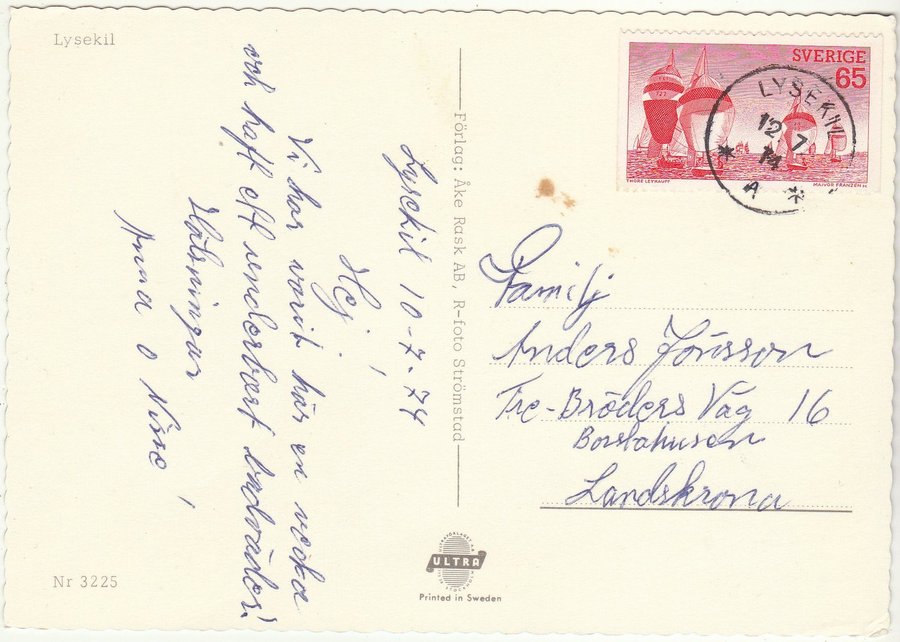 Lysekil
SVERIGE
65
THORE LEYKAUFF
MAJVOR FRANZÉN SC
LYSEKIL
12 7
74
* A *
Lysekil 10-7-74
Hej!
Vi har varit här en vecka
och haft ett underbart badväder!
Hälsningar
Anna o Nisse!
Förlag: Åke Rask AB, R-foto Strömstad
Familj
Anders Jönsson
Tre-Bröders Väg 16
Borstahusen
Landskrona
ULTRA
Printed in Sweden
Nr 3225